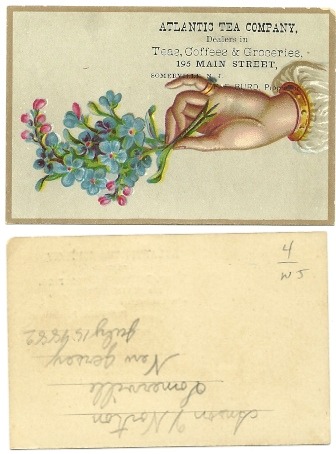 ATLANTIC TEA COMPANY,
Dealers in
Teas, Coffees & Groceries,
195 MAIN STREET,
SOMERVILLE, N. J.
BURD,
4
NJ
Norton
Somerville
New Jersey
July 15 1882